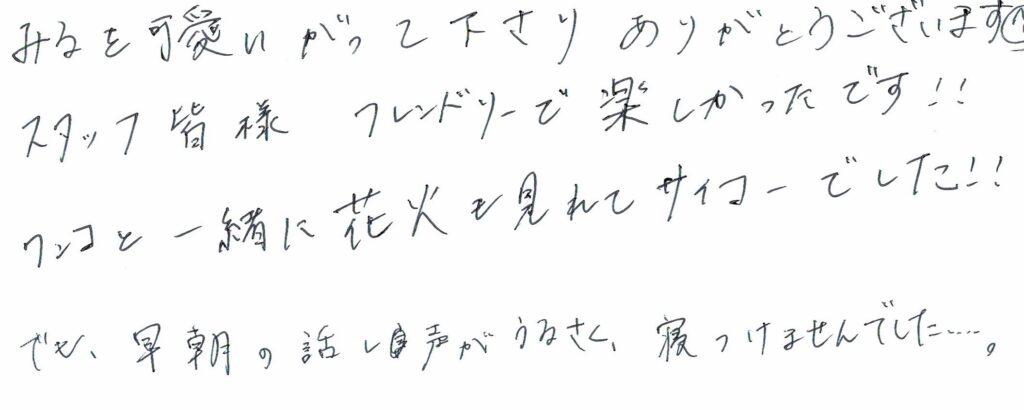 みるを可愛いがって下さりありがとうございます
スタッフ皆様 フレンドリーで楽しかったです!!
ワンコと一緒に花火も見れてサイコーでした!!
でも、早朝の話し声がうるさく、寝つけませんでした……。